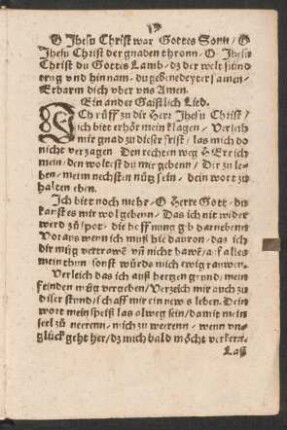 O Jhesu Christ war Gottes Sonn / O
Jhesu Christ der gnaden thronn / O Jhesu
Christ du Gottes Lamb / dz der welt sünd
trug vnd hin nam / du gebenedeyter samen /
Erbarm dich vber vns Amen.
Ein ander Gaistlich Lied.
ICh rüff zu dir Herr Jhesu Christ /
ich bitt erhör mein klagen / Verleih
mir gnad zu dieser frist / las mich do
nicht verzagen Den rechten weg H Er ich
mein / den wolest du mir gebenn / Dir zu le=
ben / meim nechsten nütz sein / dein wort zu
halten eben.
Ich bitt noch mehr / O Herre Gott / du
kanst es mir wol gebenn / Das ich nit wider
werd zů spot / die hoffnung gib darnebenn
Voraus wenn ich muß hie dauon / das ich
dir müg vertrawē vn̄ nicht bawē / auf alles
mein thun sonst würds mich ewig rauwen.
Verleich das ich auß hertzen grund / mein
feinden müg vergeben / Verzeich mir auch zu
diser stund / schaff mir ein news leben. Dein
wort mein speiß las alweg sein / damit mein
seel zů neeren / mich zu weerenn / wenn vn=
glück geht her / dz mich bald möcht verkern.
Laß